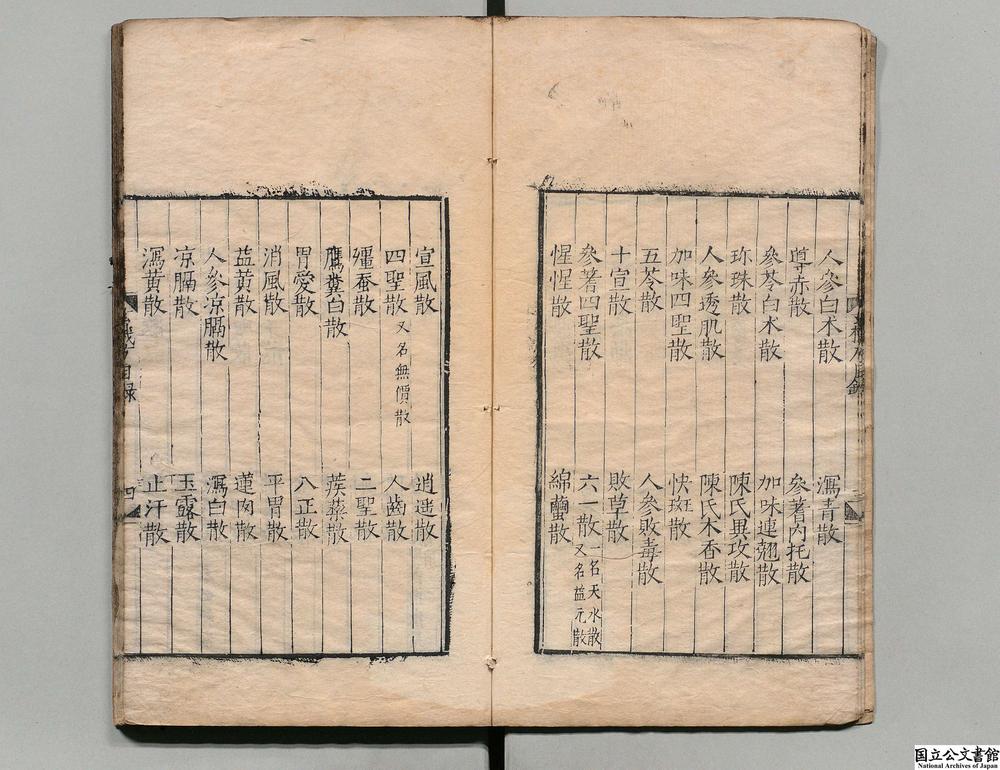 人參白朮散
瀉青散
導赤散
參蓍內托散
參苓白朮散
加味連翹散
珎珠散
陳氏異攻散
人參透肌散
陳氏木香散
加味四聖散
快斑散
五苓散
人參敗毒散
十宣散
敗草散
參蓍四聖散
六一散 一名天水散
又名益元散
惺惺散
綿蠒散
宣風散
逍遙散
四聖散 又名無價散
人齒散
殭蚕散
二聖散
鷹糞白散
八正散
胃愛散
消風散
平胃散
益黃散
蓮肉散
人參凉膈散
瀉白散
凉膈散
玉露散
瀉黃散
止汗散
目録
四
国立公文書館
National Archives of Japan